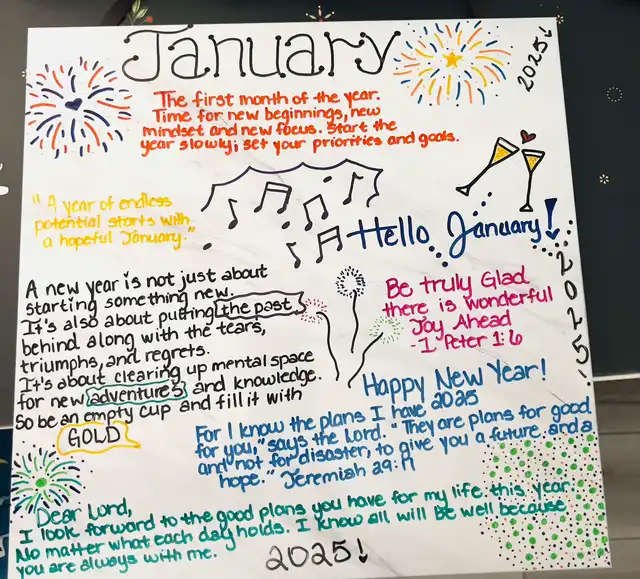 January
2025!
The first month of the year.
Time for new beginnings, new
mindset and new focus. Start the
year slowly; set your priorities and goals.
"A year of endless
potential starts with
a hopeful January."
Hello January!
2025!
A new year is not just about
starting something new.
It's also about putting the past
behind along with the tears,
triumphs, and regrets.
It's about clearing up mental space
for new adventure's and knowledge.
So be an empty cup and fill it with
GOLD
Be truly Glad
there is wonderful
Joy Ahead
- 1 Peter 1:6
Happy New Year!
2025
For I know the plans I have
for you," says the Lord. "They are plans for good
and not for disaster, to give you a future and a
hope." Jeremiah 29:11
Dear Lord,
I look forward to the good plans you have for my life this year.
No matter what each day holds. I know all will be well because
you are always with me.
2025!